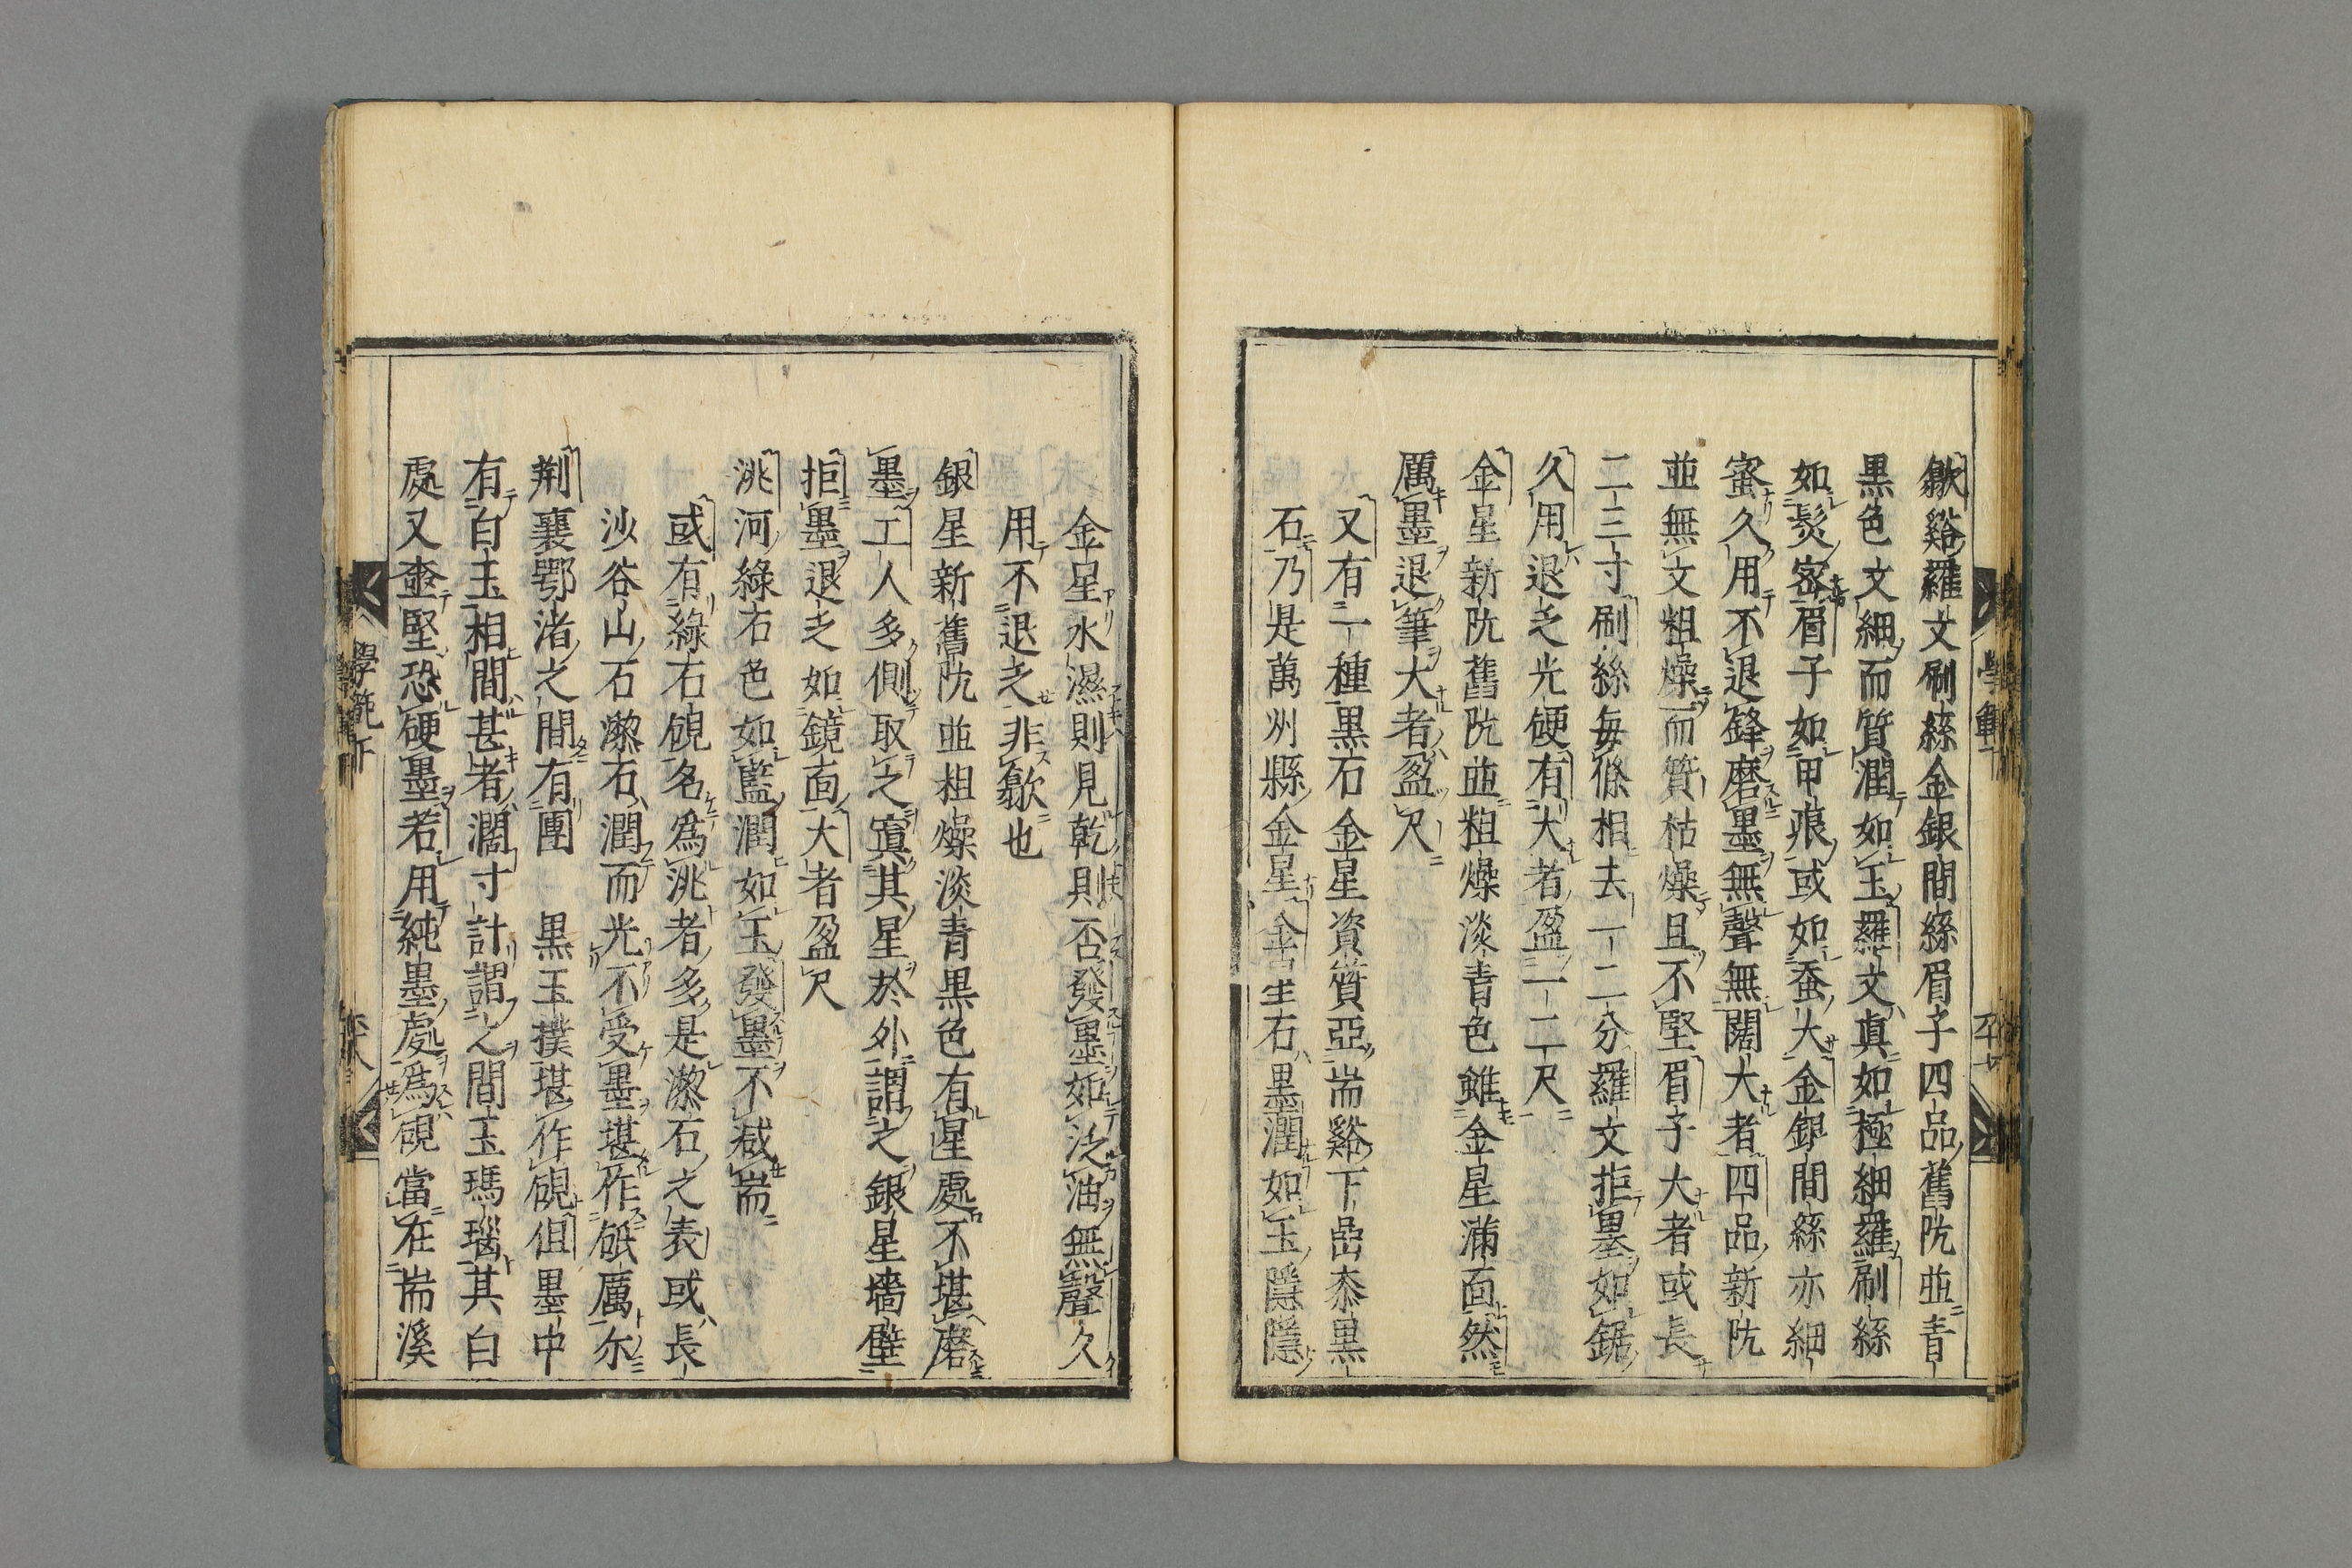 歙谿羅文刷絲金銀間絲眉子四品舊阬並青
黒色文細而質潤如玉羅文真如極細羅刷絲
如髮密眉子如甲痕或如蚕大金銀間絲亦細
蜜久用不退鋒磨墨無聲無闊大者四品新阬
並無文粗燥而質枯燥且不堅眉子大者或長
二三寸刷絲每條相去一二分羅文拒墨如鋸
久用退乏光硬有大者盈一二尺
金星新阬舊阬並粗燥淡青色雖金星滿面然
厲墨退筆大者盈尺
又有一種黒石金星資質亞端谿下嵒桼黒
石乃是萬州縣金星金星石黒潤如玉隱隱
金星水濕則見乾則否發墨如泛油無聲久
用不退乏非歙也
銀星新舊阬並粗燥淡青黒色有星處不堪磨
墨工人多側取之寘其星於外謂之銀星墻壁
拒墨退乏如鏡面大者盈尺
洮河綠石色如藍潤如玉發墨不减端
或有綠石硯名為洮者多是漈石之表或長
沙谷山石漈石潤而光不受墨堪作砥厲尔
荆襄鄂渚之間有團　黒玉撲堪作硯但墨中
有白玉相間甚者濶寸計謂之間玉瑪瑙其白
處又堅恐硬墨若用純墨處為硯當在端溪
學範下